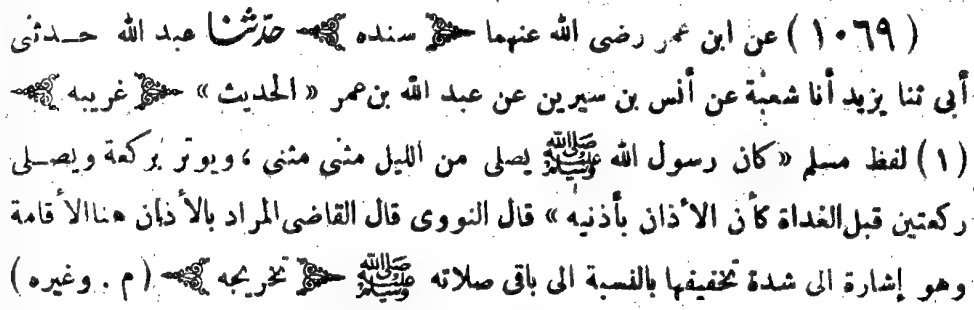 ( ١٠٦٩ ) عن ابن عمر رضى الله عنهما ﴿ سنده ﴾ حدّثنا عبد الله حـدثنى
أبى ثنا يزيد أنا شعبة عن أنس بن سيرين عن عبد الله بن عمر « الحديث » ﴿ غريبه ﴾
( ١ ) لفظ مسلم « كان رسول الله ﷺ يصلى من الليل مثنى مثنى ، ويوتر بركعة ويصـلى
ركعتين قبل الغداة كأن الأذان بأذنيه » قال النووى قال القاضى المراد بالأذان هنا الأقامة
وهو إشارة الى شدة تخفيفها بالنسبة الى باقى صلاته ﷺ ﴿ تخريجه ﴾ ( م . وغيره )